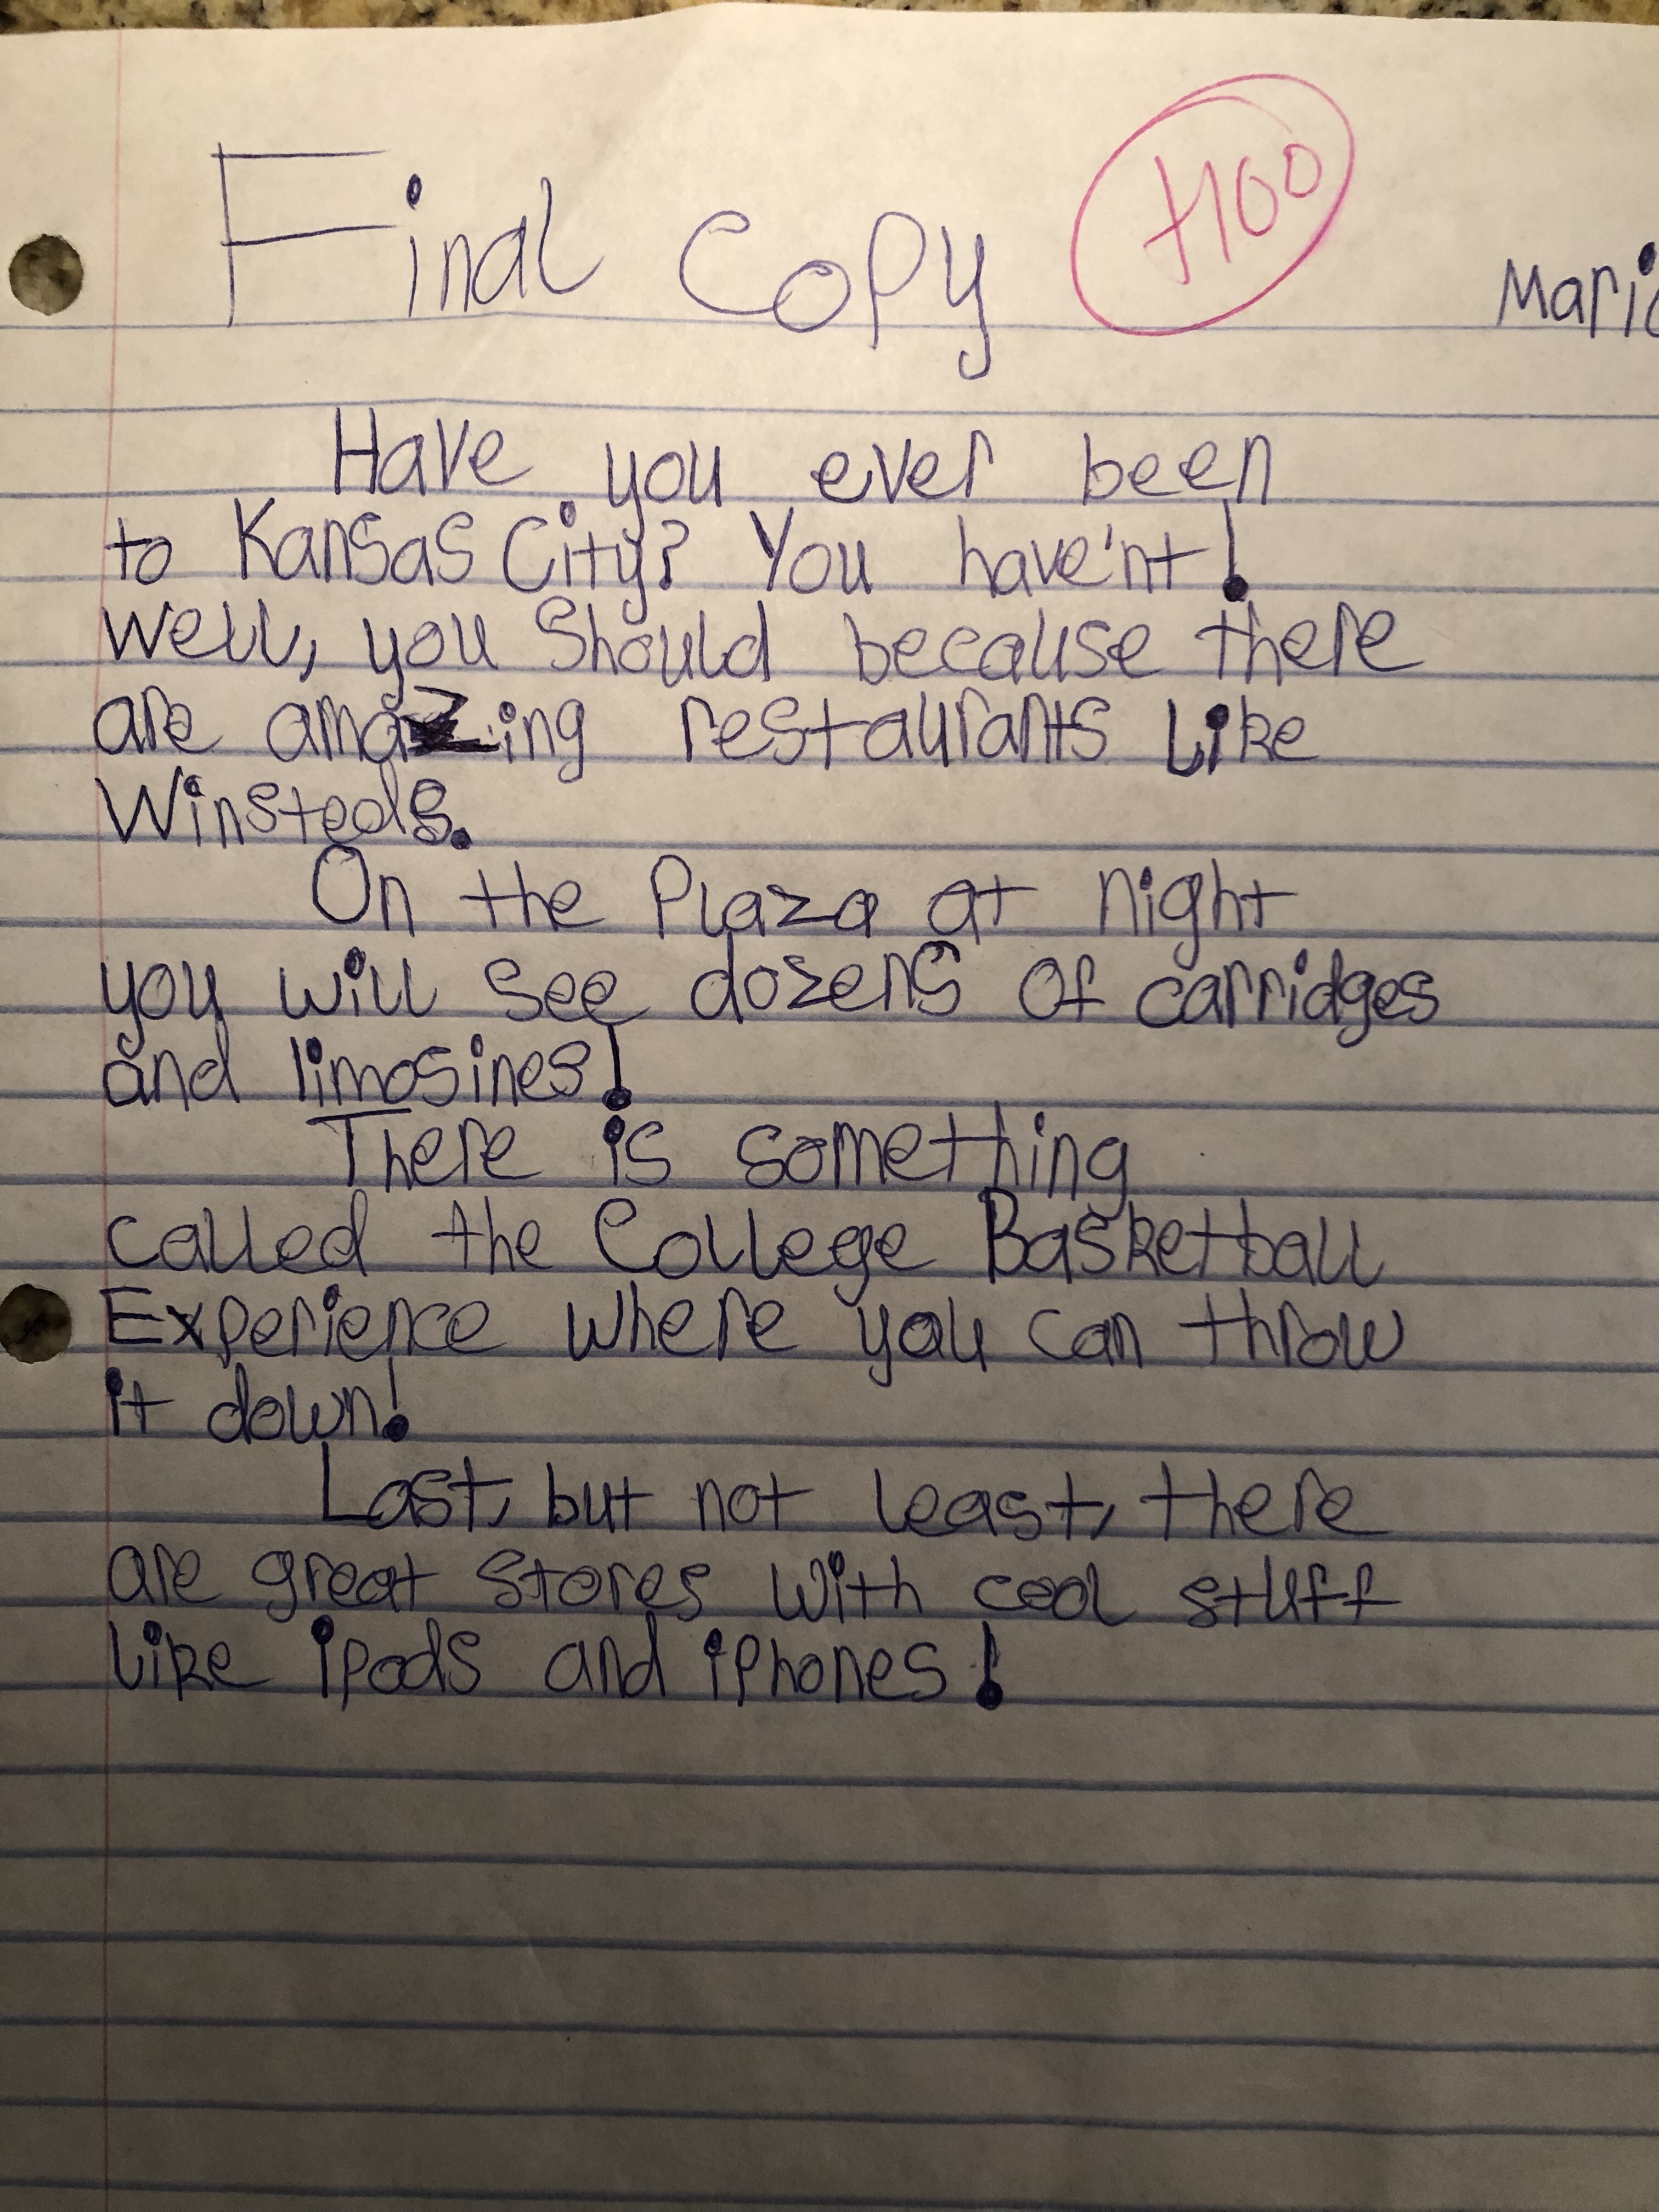 Final Copy +100
Mario
Have you ever been
to Kansas City? You have'nt!
Well, you Should because there
are amazing restaurants Like
Winsteds.
On the Plaza at night
you will see dozens of carridges
and limosines!
There is something
called the College Basketball
Experience where you can throw
it down!
Last, but not least, there
are great stores with cool stuff
like ipods and iphones!